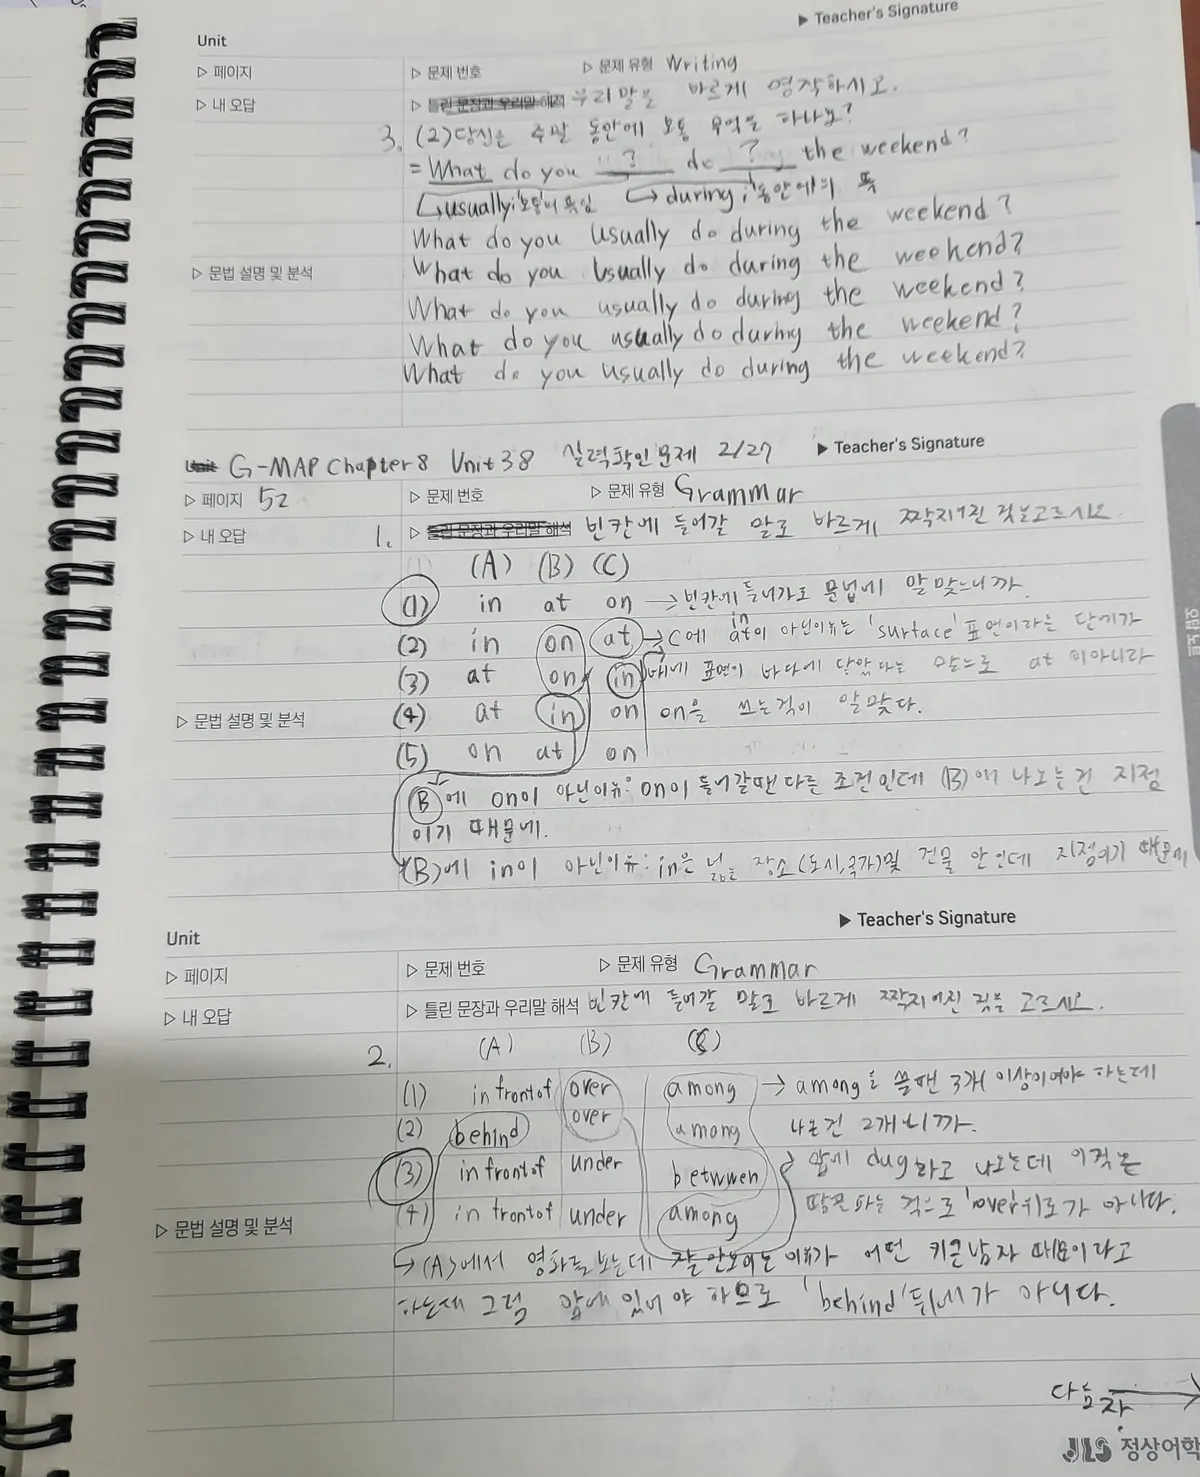 ▶ Teacher's Signature
Unit
▷ 페이지 ▷ 문제 번호 ▷ 문제 유형 Writing
▷ 내 오답 ▷ 틀린 문장과 우리말 해석 우리말을 바르게 영작하시오.
3. (2) 당신은 주말 동안에 보통 무엇을 하나요?
= What do you ? do ? the weekend?
↳usually:'보통'의 뜻임 ↳during:'동안에'의 뜻
What do you usually do during the weekend?
▷ 문법 설명 및 분석 What do you usually do during the weekend?
What do you usually do during the weekend?
What do you usually do during the weekend?
What do you usually do during the weekend?
Unit G-MAP Chapter8 Unit38 실력확인문제 2/27 ▶ Teacher's Signature
▷ 페이지 52 ▷ 문제 번호 ▷ 문제 유형 Grammar
▷ 내 오답 1. ▷ 틀린 문장과 우리말 해석 빈칸에 들어갈 말로 바르게 짝지어진 것을고르시오.
(A) (B) (C)
(1) in at on → 빈칸에 들어가도 문법에 알맞으니까.
(2) in on at → C에 at이 in 아닌이유는 'surface' 표면이라는 단어가
(3) at on in 표면이 바다에 닿았다는 말으로 at 이아니라
▷ 문법 설명 및 분석 (4) at in on on을 쓰는것이 알맞다.
(5) on at on
(B)에 on이 아닌이유: on이 들어갈땐 다른 조건인데 (B)에 나오는건 지점
이기 때문에.
(B)에 in이 아닌이유: in은 넓은 장소(도시,국가)및 건물 안인데 지점이기 때문에
▶ Teacher's Signature
Unit
▷ 페이지 ▷ 문제 번호 ▷ 문제 유형 Grammar
▷ 내 오답 ▷ 틀린 문장과 우리말 해석 빈칸에 들어갈 말로 바르게 짝지어진 것을 고르시오.
2. (A) (B) (C)
(1) in front of over among → among를 쓸땐 3개 이상이여야 하는데
(2) behind over among 나온건 2개니까.
(3) in front of under betwwen 앞에 dug라고 나오는데 이것은
▷ 문법 설명 및 분석 (4) in front of under among 땅을 파는 것으로 'over'위로가 아니다.
↳ (A)에서 영화를 보는데 잘 안보이는 이유가 어떤 키큰남자 때문이라고
하는데 그럼 앞에 있어야 하므로 'behind' 뒤에가 아니다.
다음장 →
JLS 정상어학
오답노트